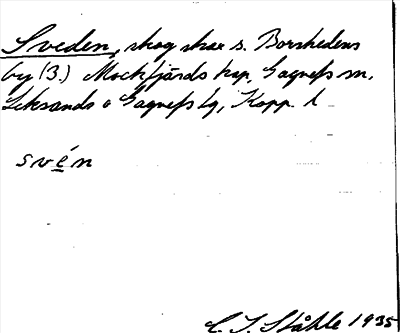 Sveden, skog shax s. Borshedens
by (3.) Mockfjärds kap, Gagnefs sn,
Leksands o Gagnefs tg, Kopp. l
svén
C. I. Ståhle 1935